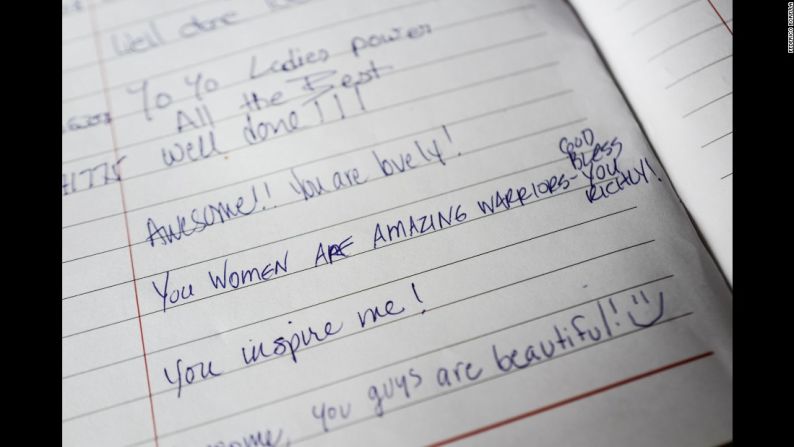 Well done
Yo Yo Ladies power
All the Best
well done!!!
Awesome!! You are lovely!
YOU WOMEN ARE AMAZING WARRIORS-GOD
BLESS
YOU
RICHLY!
You inspire me!
you guys are beautiful!
FEDERICO BORELLA